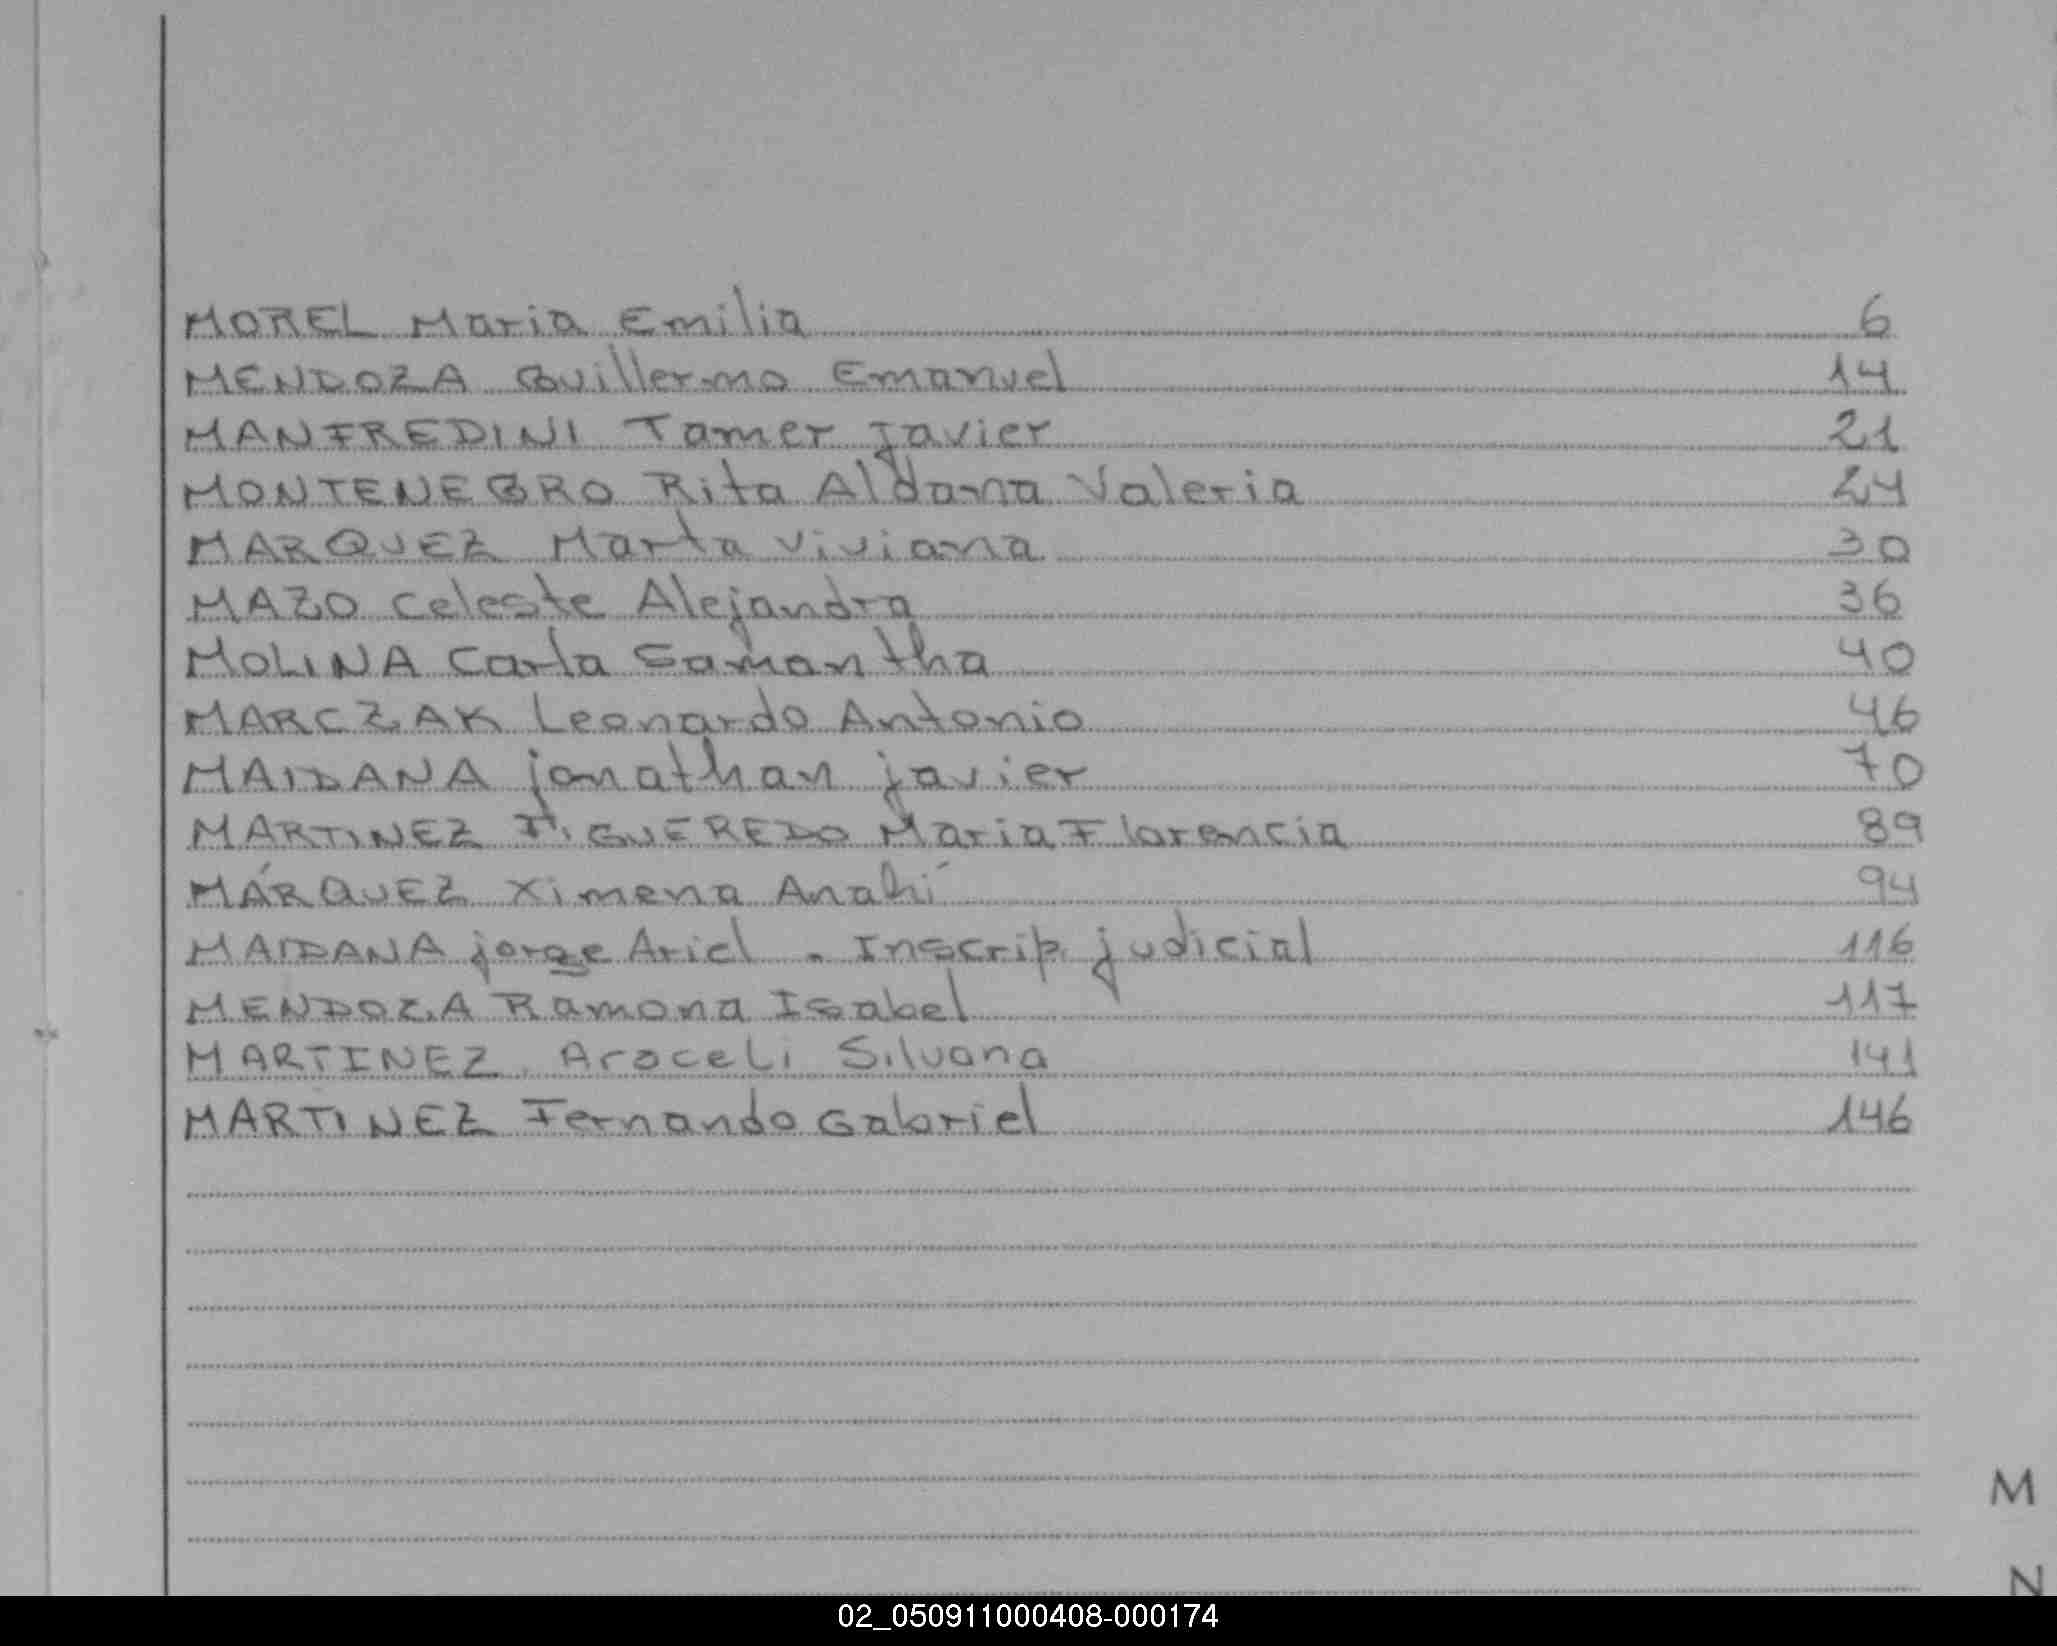 MOREL Maria Emilia 6
MENDOZA Guillermo Emanuel 14
MANFREDINI Tamer Javier 21
MONTENEGRO Rita Aldana Valeria 24
MARQUEZ Marta Viviana 30
MAZO Celeste Alejandra 36
MOLINA Carla Samantha 40
MARCZAK Leonardo Antonio 46
MAIDANA jonathan javier 70
MARTINEZ FIGUEREDO Maria Florencia 89
MÁRQUEZ Ximena Anahí 94
MAIDANA jorge Ariel - Inscrip. judicial 116
MENDOZA Ramona Isabel 117
MARTINEZ, Araceli Silvana 141
MARTINEZ Fernando Gabriel 146
M
N
02_050911000408-000174